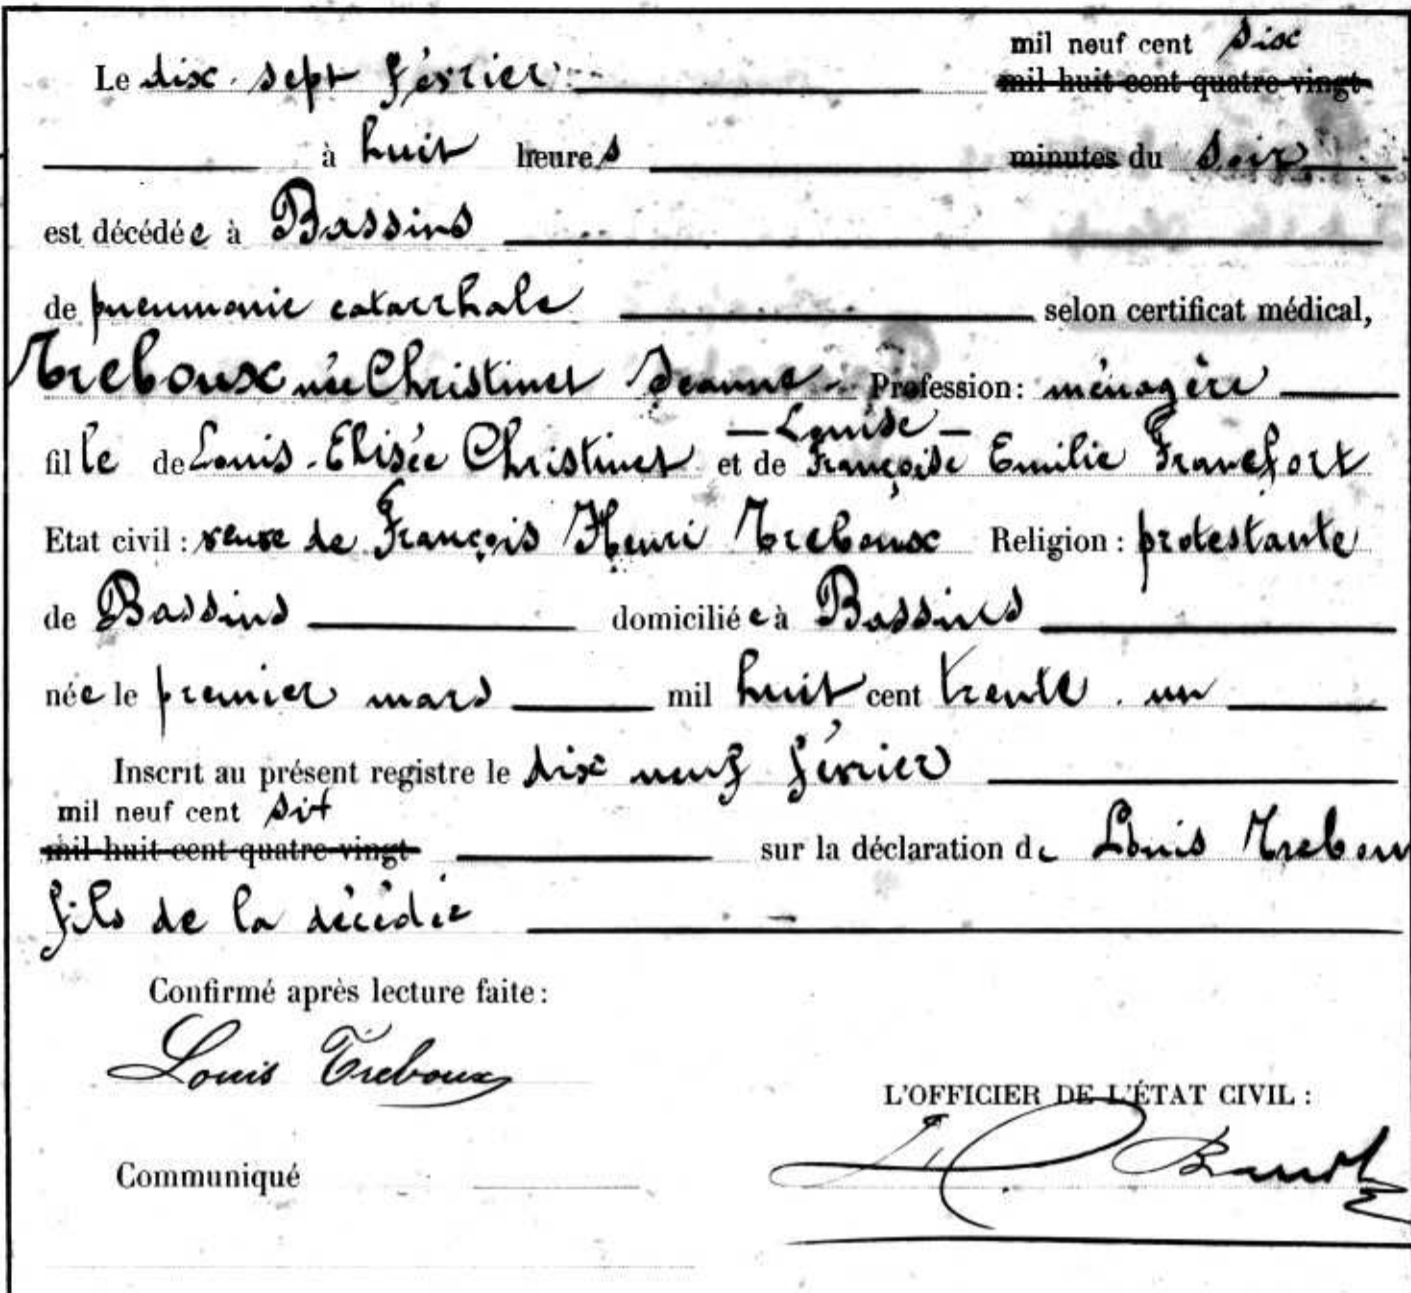 mil neuf cent six
Le dix-sept février mil huit cent quatre-vingt
à huit heures minutes du soir
est décédée à Bassins
de pneumonie catarrhale selon certificat médical,
Treboux née Christinet Jeanne Profession: ménagère
— Louise —
fille de Louis-Elisée Christinet et de Françoise Emilie Francfort
Etat civil: veuve de François Henri Treboux Religion: protestante
de Bassins domiciliée à Bassins
née le premier mars mil huit cent trente un
Inscrit au présent registre le dix neuf février
mil neuf cent six
mil huit cent quatre-vingt sur la déclaration de Louis Treboux
fils de la décédée
Confirmé après lecture faite:
Louis Treboux
L'OFFICIER DE L'ÉTAT CIVIL:
Communiqué